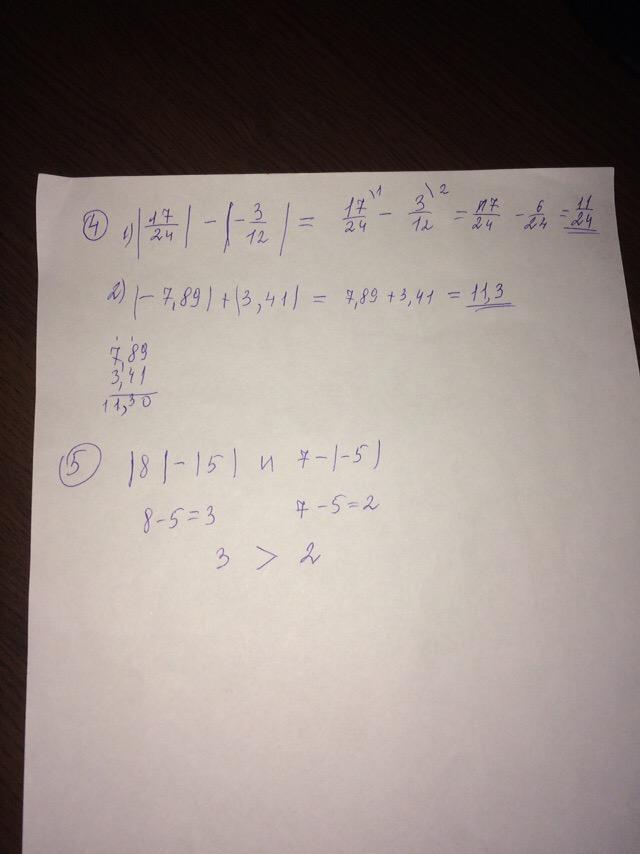 ④ 1) |17/24| - |-3/12| = 17/24\1 - 3/12\2 = 17/24 - 6/24 = 11/24
2) |-7,89| + |3,41| = 7,89 + 3,41 = 11,3
7,89
3,41
11,30
⑤ |8| - |5| и 7 - |-5|
8-5=3 7-5=2
3 > 2